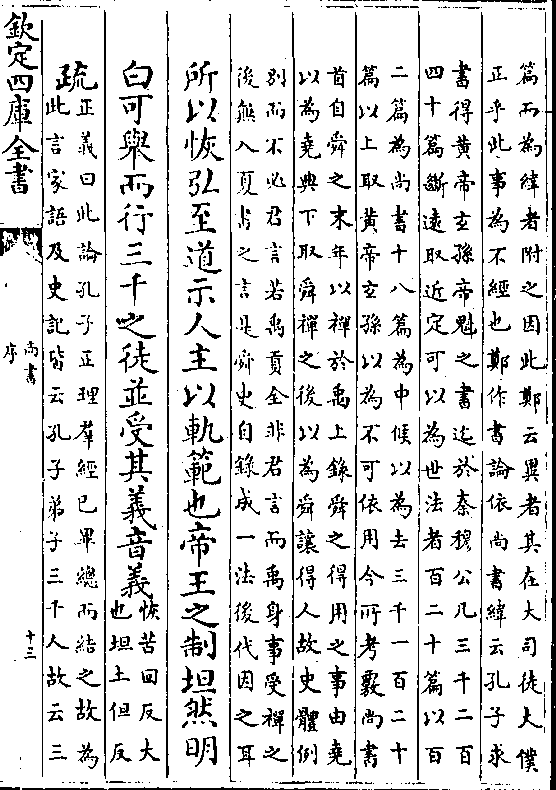 篇而為緯者附之因此鄭云異者其在大司徒大僕
正乎此事為不經也鄭作書論依尚書緯云孔子求
書得黄帝玄孫帝魁之書迄於秦穆公凡三千二百
四十篇斷遠取近定可以為世法者百二十篇以百
二篇為尚書十八篇為中候以為去三千一百二十
篇以上取黄帝玄孫以為不可依用今所考覈尚書
首自舜之末年以禪於禹上錄舜之得用之事由堯
以為堯典下取舜禪之後以為舜讓得人故史體例
別而不必君言若禹貢全非君言而禹身事受禪之
後無入夏書之言是舜史自錄成一法後代因之耳
所以恢弘至道示人主以軌範也帝王之制坦然明
白可舉而行三千之徒並受其義音義恢苦回反大
也坦土但反
疏正義曰此論孔子正理羣經已畢總而結之故為
此言家語及史記皆云孔子弟子三千人故云三
欽定四庫全書
尚書
序
十三